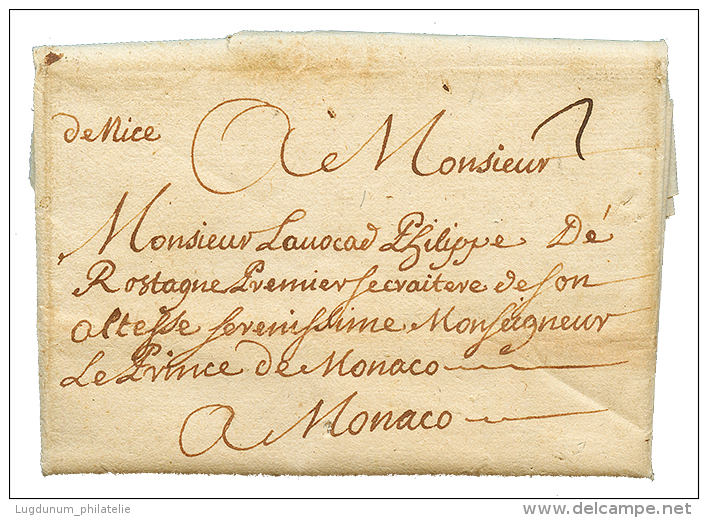 de Nice
A Monsieur
Monsieur Lauocad Philippe Dé
Rostagne Premier secraitere de son
altesse serenissime Monseigneur
Le Prince de Monaco
A Monaco
Lugdunum_philatelie
delcampe.net